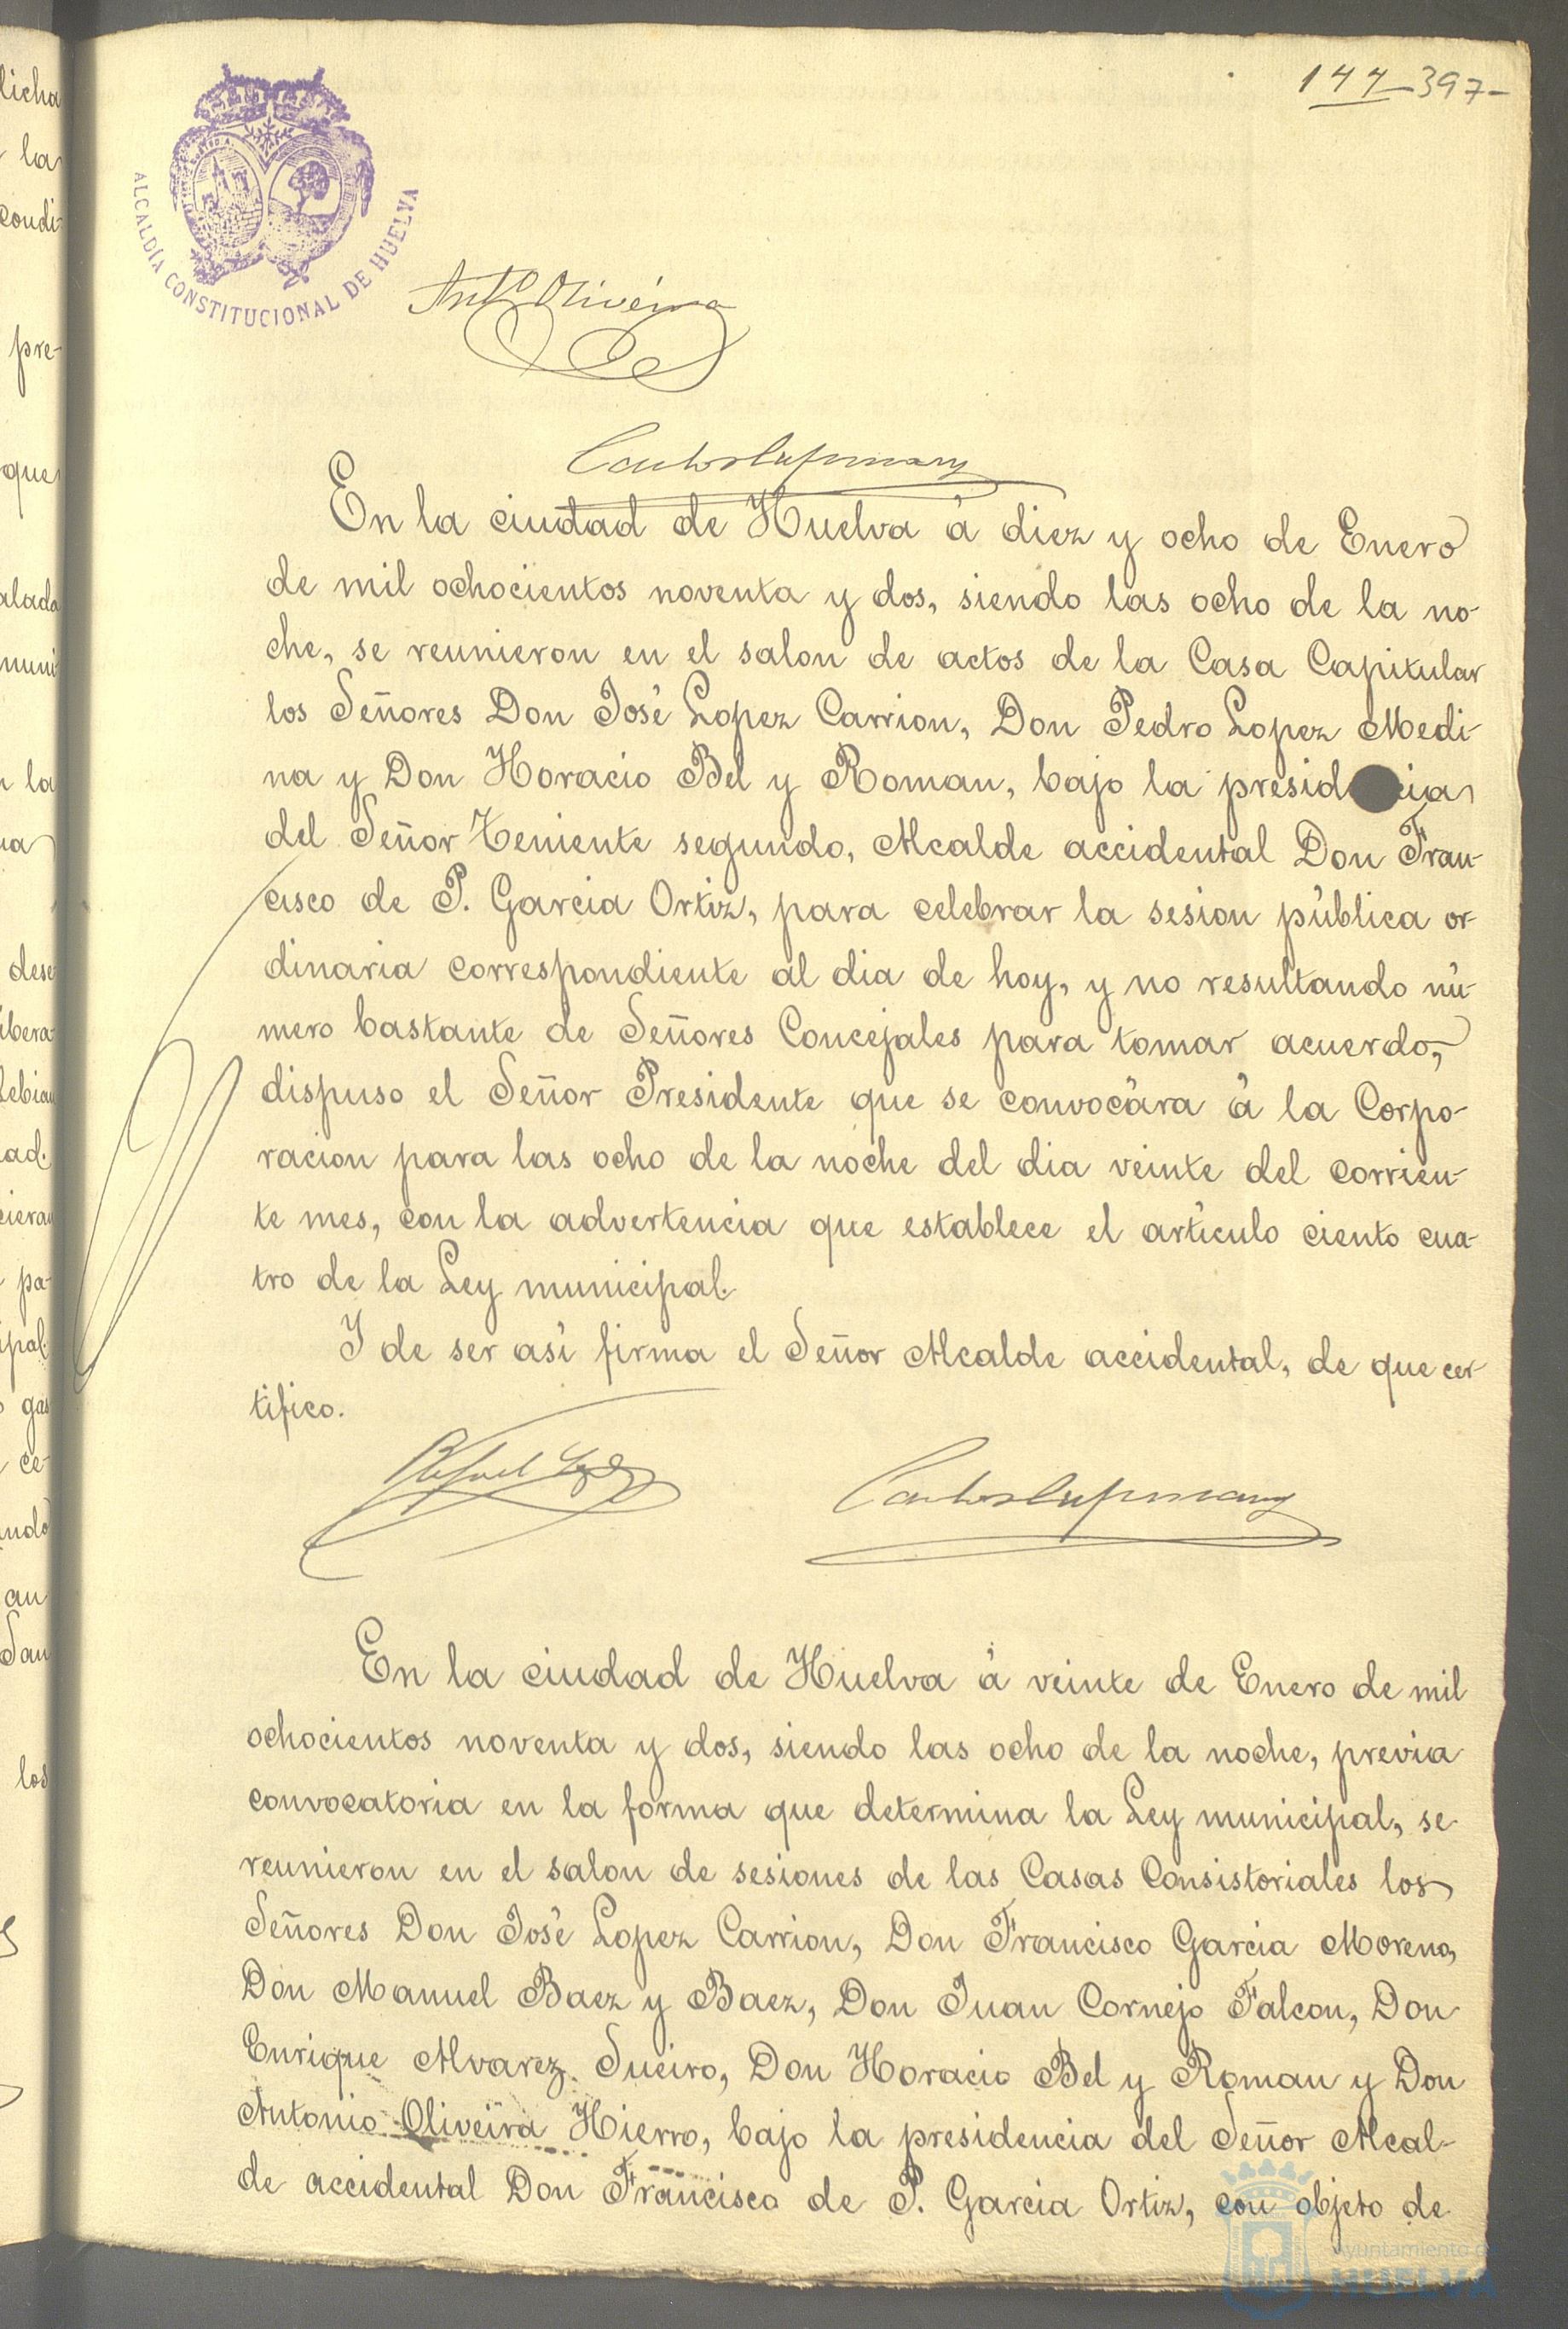 144 397-
ALCALDÍA CONSTITUCIONAL DE HUELVA
Antº Oliveira
En la ciudad de Huelva á diez y ocho de Enero
de mil ochocientos noventa y dos, siendo las ocho de la no-
che, se reunieron en el salon de actos de la Casa Capitular
los Señores Don José Lopez Carrion, Don Pedro Lopez Medi-
na y Don Horacio Bel y Roman, bajo la presid cia
del Señor Teniente segundo, Alcalde accidental Don Fran-
cisco de P. Garcia Ortiz, para celebrar la sesion pública or-
dinaria correspondiente al dia de hoy, y no resultando nú-
mero bastante de Señores Concejales para tomar acuerdo,
dispuso el Señor Presidente que se convocára á la Corpo-
racion para las ocho de la noche del dia veinte del corrien-
te mes, con la advertencia que establece el artículo ciento cua-
tro de la Ley municipal.
Y de ser así firma el Señor Alcalde accidental, de que cer-
tifico.
En la ciudad de Huelva á veinte de Enero de mil
ochocientos noventa y dos, siendo las ocho de la noche, previa
convocatoria en la forma que determina la Ley municipal, se
reunieron en el salon de sesiones de las Casas Consistoriales los
Señores Don José Lopez Carrion, Don Francisco Garcia Moreno,
Don Manuel Baez y Baez, Don Juan Cornejo Falcon, Don
Enrique Alvarez Sueiro, Don Horacio Bel y Roman y Don
Antonio Oliveira Hierro, bajo la presidencia del Señor Alcal-
de accidental Don Francisco de P. Garcia Ortiz, con objeto de
Ayuntamiento de
HUELVA